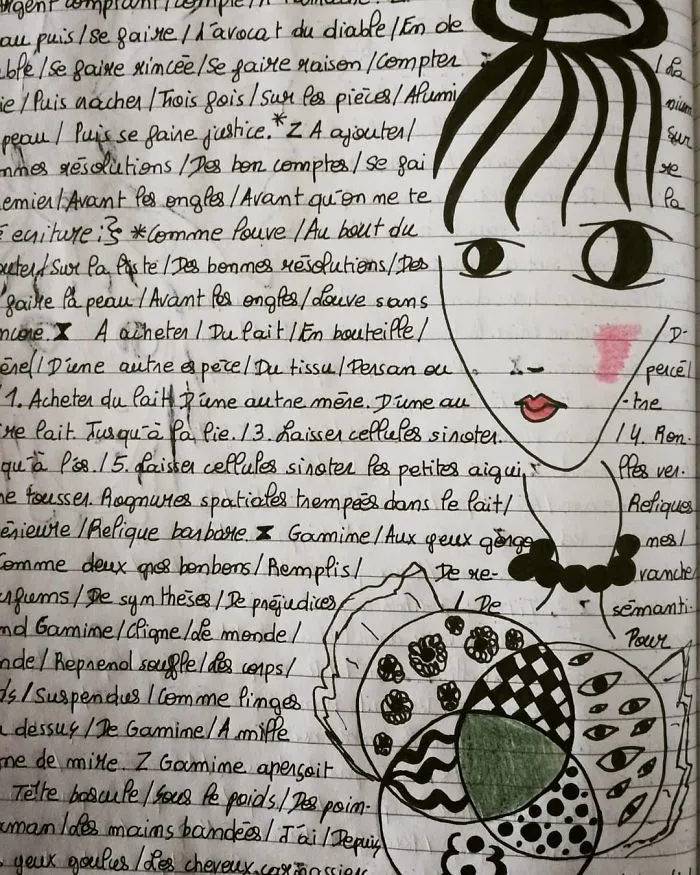 argent comptant/
au puis/Se faire/L'avocat du diable/En de
/Se faire rincée/Se faire raison/Compter /La
ie/Puis nacher/Trois fois/Sur les pièces/Alumi nium
peau/ Puis se faire justice.*Z A ajouter/ sur
mmes résolutions/Des bon comptes/Se fai re
emier/Avant les ongles/Avant qu'on me te la
écriture:} *Comme louve/Au bout du
outer/Sur la liste/Des bonnes résolutions/Des
faire la peau/Avant les ongles/Louve sans
ncore. A acheter/Du lait/En bouteille/ D-
énel/D'une autre espece/Du tissu/Persan ou percé/
1. Acheter du lait D'une autre mère. D'une au -tre
re lait. Jusqu'à la lie./3. Laisser cellules siroter. /4. Ron.
qu'à l'os./5. Laisser cellules siroter les petites aigui, lles ver.
ne tousser. Rognures spatiales trempées dans le lait/ Reliques
érieure/Relique barbare Gamine/Aux yeux gorge mes/
Comme deux gros bonbons/Remplis/ De re- vanche/
rfums/De synthèses/De préjudices / De sémanti-
nd Gamine/Cligne/Le monde/ Pour
nde/Reprend souffle/Les corps/
ds/Suspendus/Comme linges
dessus/De Gamine/A mille
ne de mire. Z Gamine aperçoit
Tête bascule/Sous le poids/Des poim-
aman/Les mains bandées/J'ai/Depuis
yeux goulus/Les cheveux carnassiers